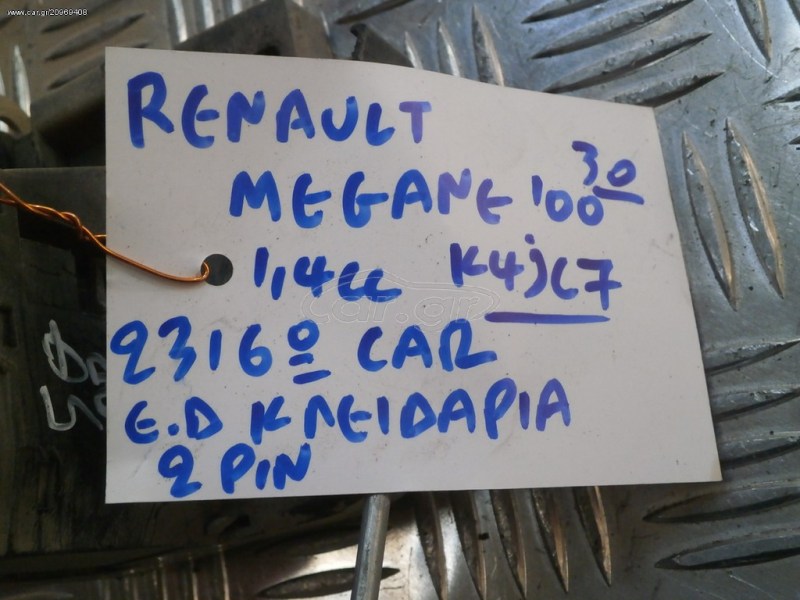 www.car.gr/20969408
RENAULT
MEGANE '00 30
1,4cc K4JC7
2316º CAR
E.D ΚΛΕΙΔΑΡΙΑ
2 PIN
car.gr